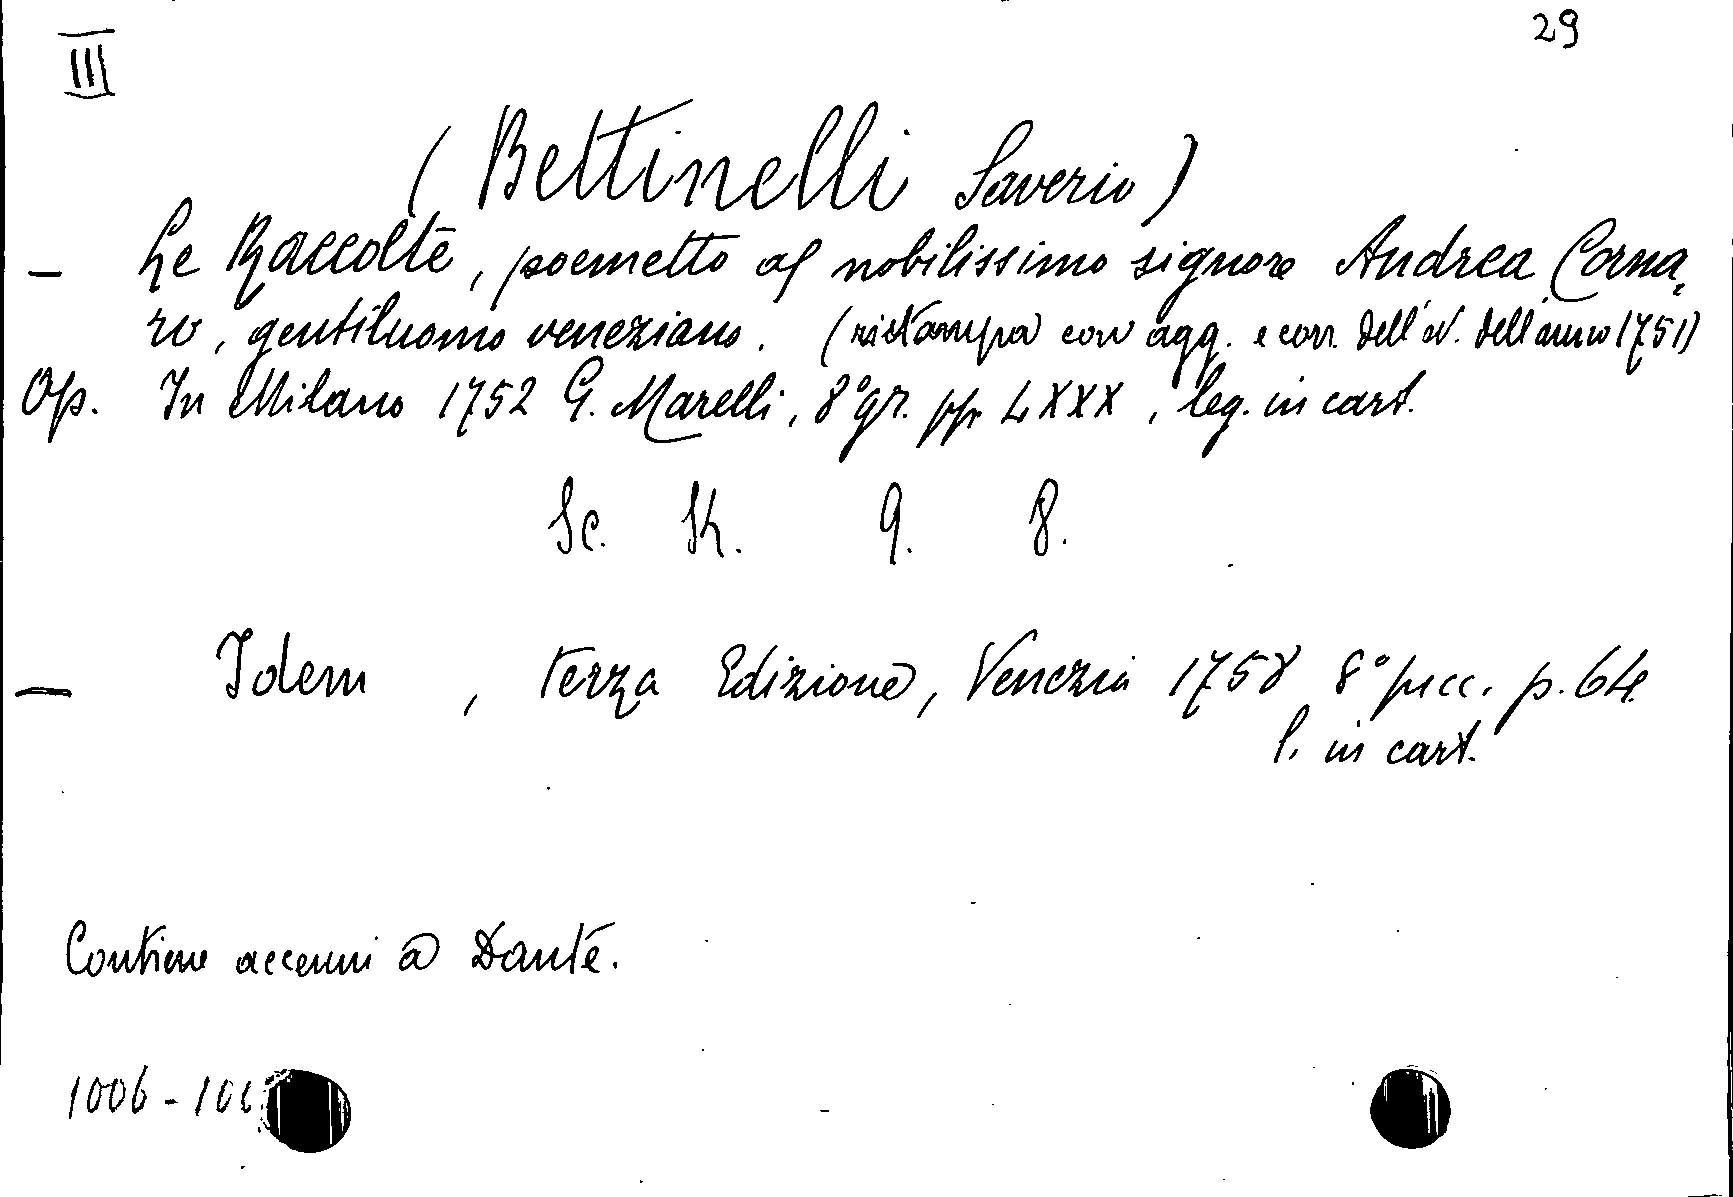 III
29
(Bettinelli Saverio)
- Le Raccolte, poemetto al nobilissimo signore Andrea Corna-
ro, gentiluomo veneziano. (ristampa con agg. e corr. dell'A. dell'anno 1751)
Op. In Milano 1752 G. Marelli, 8° gr. pp. LXXX, leg. in cart.
Sc. St. 9. 8.
- Idem, terza Edizione, Venezia 1758 8° picc. p. 64
l. in cart.
Contiene accenni a Dante.
1006 -